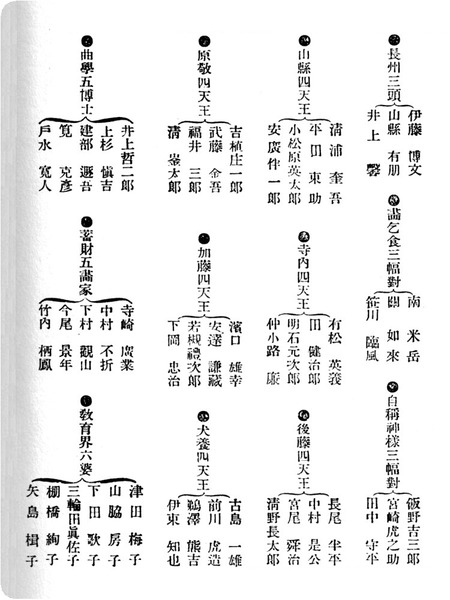 長州三頭
伊藤 博文
山縣 有朋
井上 馨
畵乞食三幅對
南 米岳
關 如來
笹川 臨風
自稱神樣三幅對
飯野吉三郎
宮崎虎之助
田中 守平
山縣四天王
清浦 奎吾
平田 東助
小松原英太郎
安廣伴一郎
寺内四天王
有松 英義
田 健治郎
明石元次郎
仲小路 廉
後藤四天王
長尾 半平
中村 是公
宮尾 舜治
清野長太郎
原敬四天王
吉植庄一郎
武藤 金吉
福井 三郎
清 崟太郎
加藤四天王
濱口 雄幸
安達 謙藏
若槻禮次郎
下岡 忠治
犬養四天王
古島 一雄
前川 虎造
鵜澤 熊吉
伊東 知也
曲學五博士
井上哲二郎
上杉 愼吉
建部 遯吾
筧 克彦
戸水 寛人
蓄財五畵家
寺崎 廣業
中村 不折
下村 觀山
今尾 景年
竹内 栖鳳
敎育界六婆
津田 梅子
山脇 房子
下田 歌子
三輪田眞佐子
棚橋 絢子
矢島 楫子